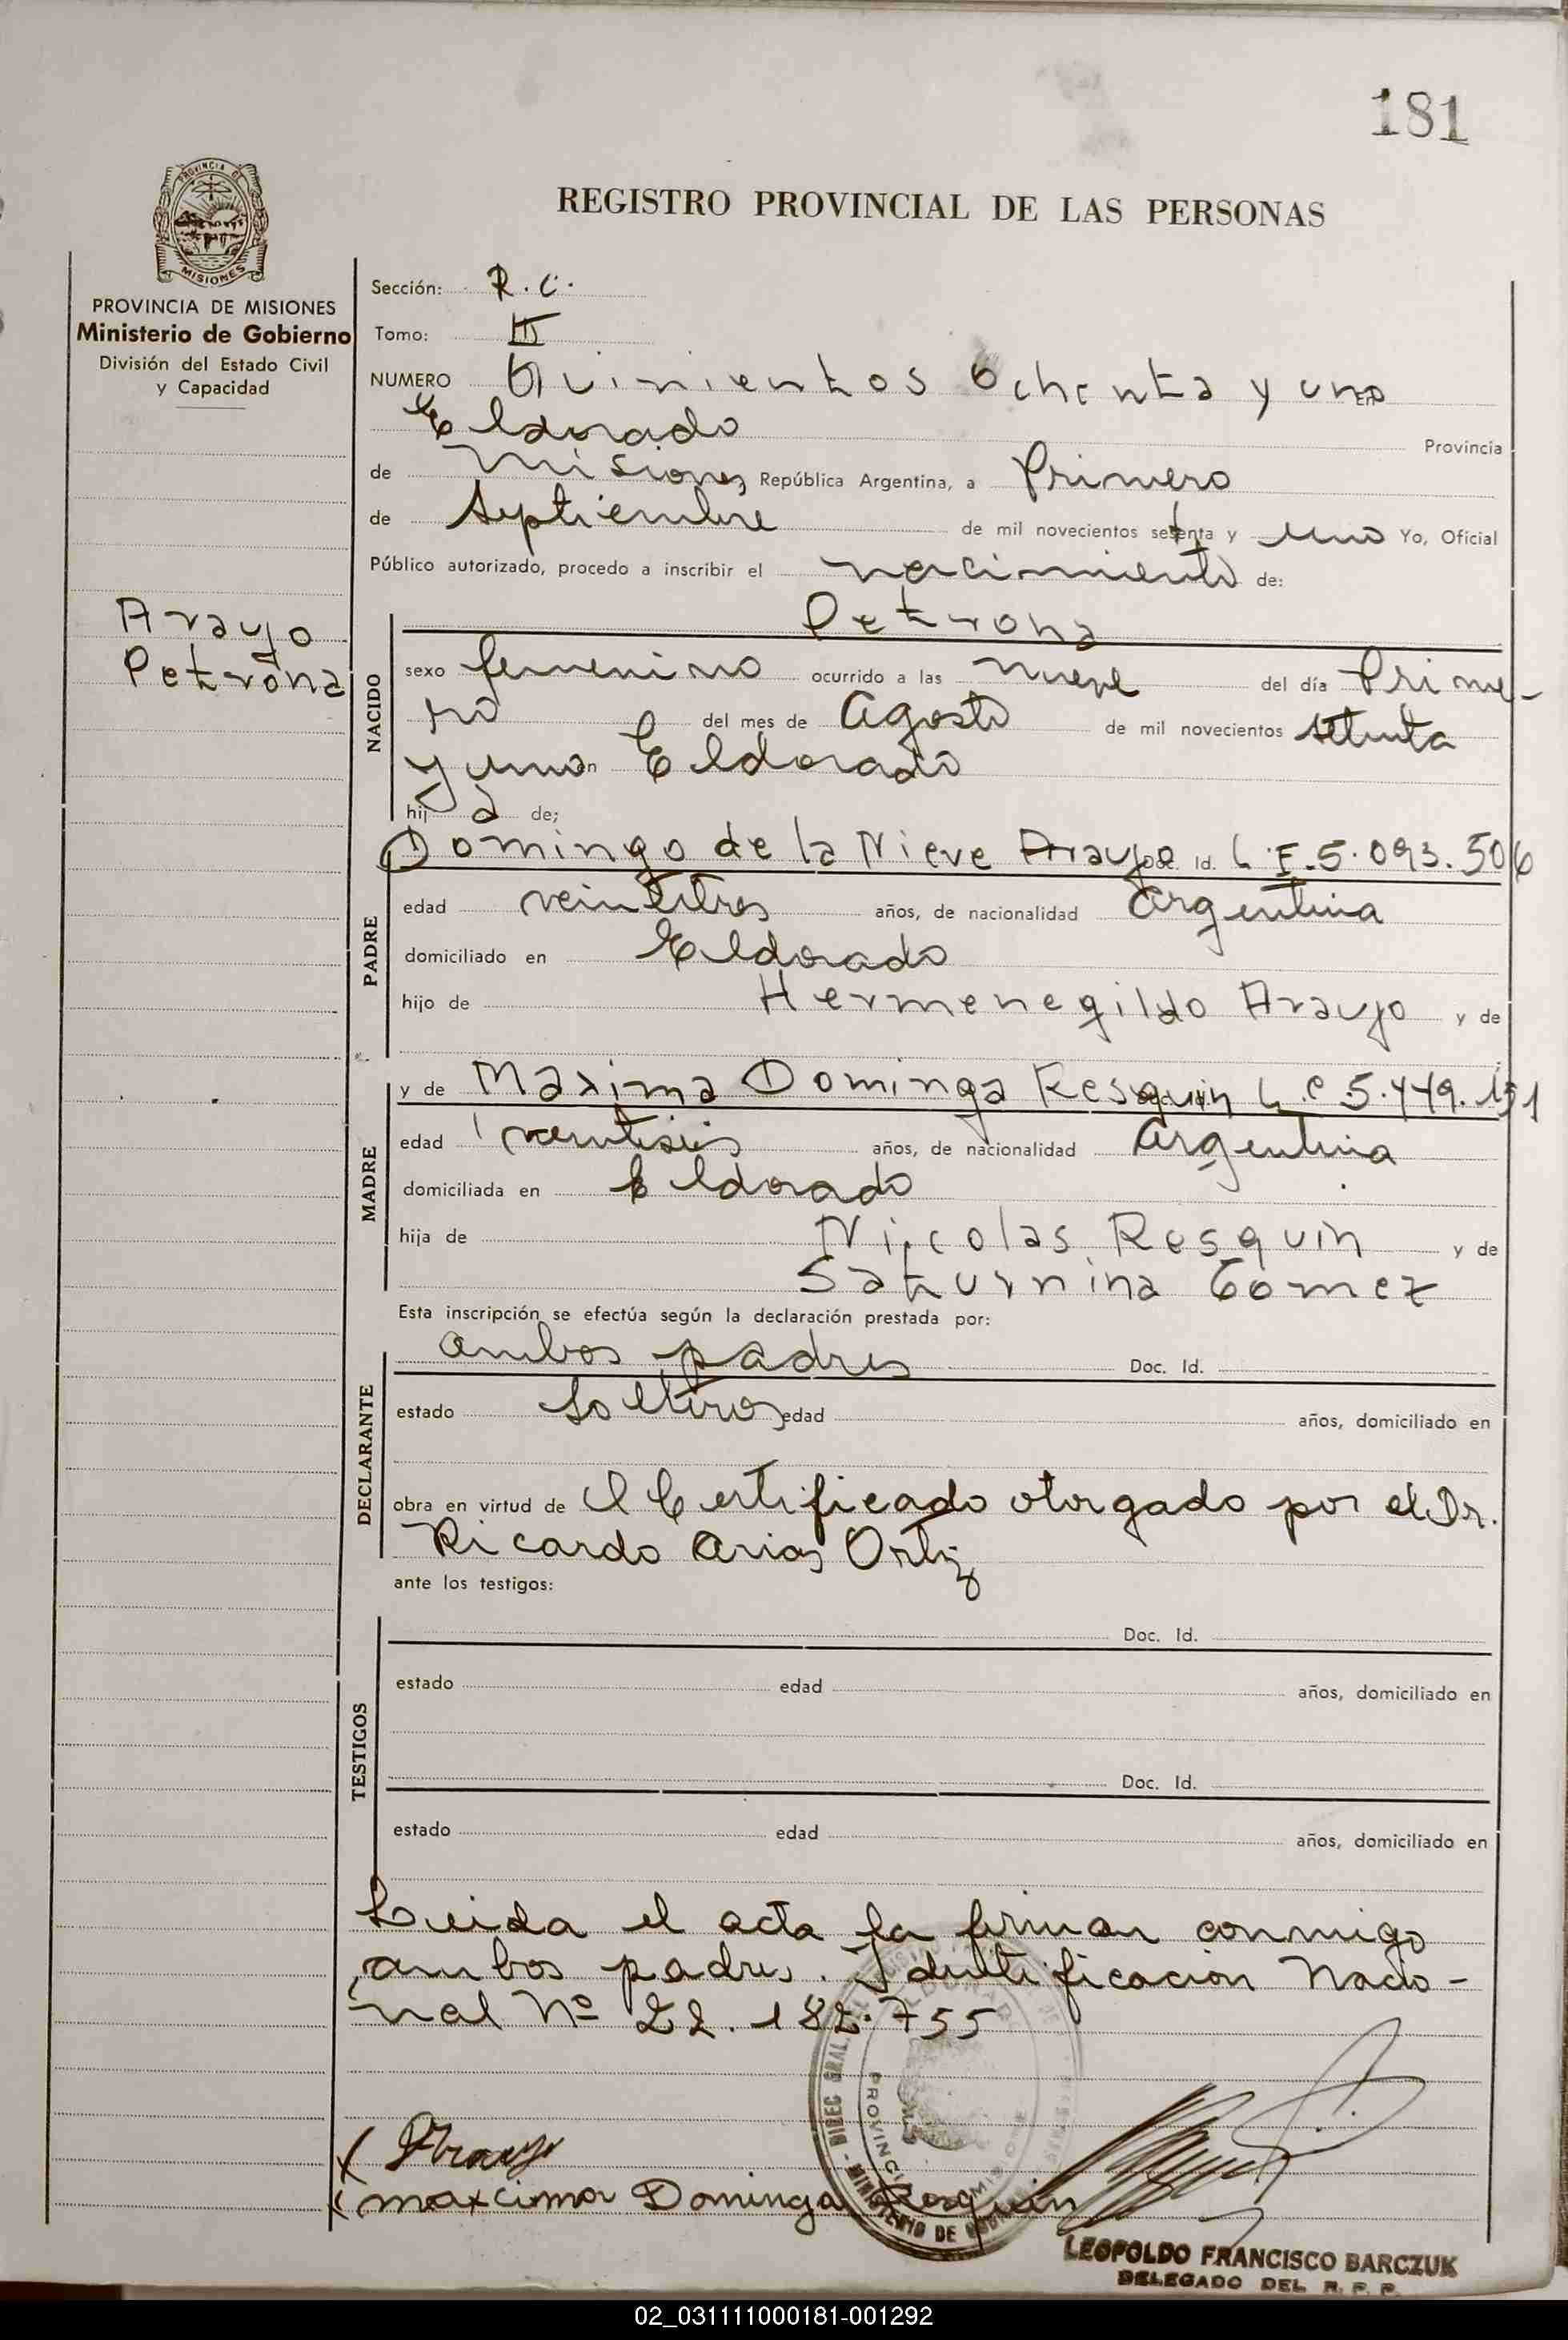 181
REGISTRO PROVINCIAL DE LAS PERSONAS
PROVINCIA DE MISIONES
PROVINCIA DE MISIONES
Ministerio de Gobierno
División del Estado Civil
y Capacidad
Sección: R.C.
Tomo: III
NUMERO Quinientos Ochenta y uno En
Eldorado Provincia
de Misiones República Argentina, a Primero
de Septiembre de mil novecientos setenta y uno Yo, Oficial
Público autorizado, procedo a inscribir el nacimiento de:
Araujo
Petrona
NACIDO
Petrona
sexo femenino ocurrido a las nueve del día Prime-
ro del mes de Agosto de mil novecientos setenta
y uno en Eldorado
hij a de;
PADRE
Domingo de la Nieve Araujo Doc. Id. L.E. 5.093.506
edad veintitres años, de nacionalidad Argentina
domiciliado en Eldorado
hijo de Hermenegildo Araujo y de
MADRE
y de Maxima Dominga Resquin L.C 5.449.151
edad veintiseis años, de nacionalidad Argentina
domiciliada en Eldorado
hija de Nicolas Resquin y de
Saturnina Gomez
Esta inscripción se efectúa según la declaración prestada por:
DECLARANTE
ambos padres Doc. Id.
estado Solteros edad años, domiciliado en
obra en virtud de el Certificado otorgado por el Dr.
Ricardo Arias Ortiz
ante los testigos:
TESTIGOS
Doc. Id.
estado edad años, domiciliado en
Doc. Id.
estado edad años, domiciliado en
Leida el acta la firman conmigo
ambos padres. Identificacion Nacio-
nal Nº 22.182.755
Araujo
maxcima Dominga Resquin
LEOPOLDO FRANCISCO BARCZUK
DELEGADO DEL R. P. P.
02_031111000181-001292